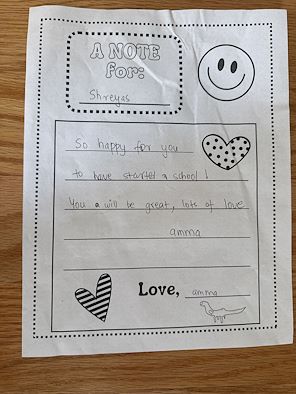 A NOTE
for:
Shreyas
So happy for you
to have started a school !
You a will be great, lots of love
amma
Love, amma